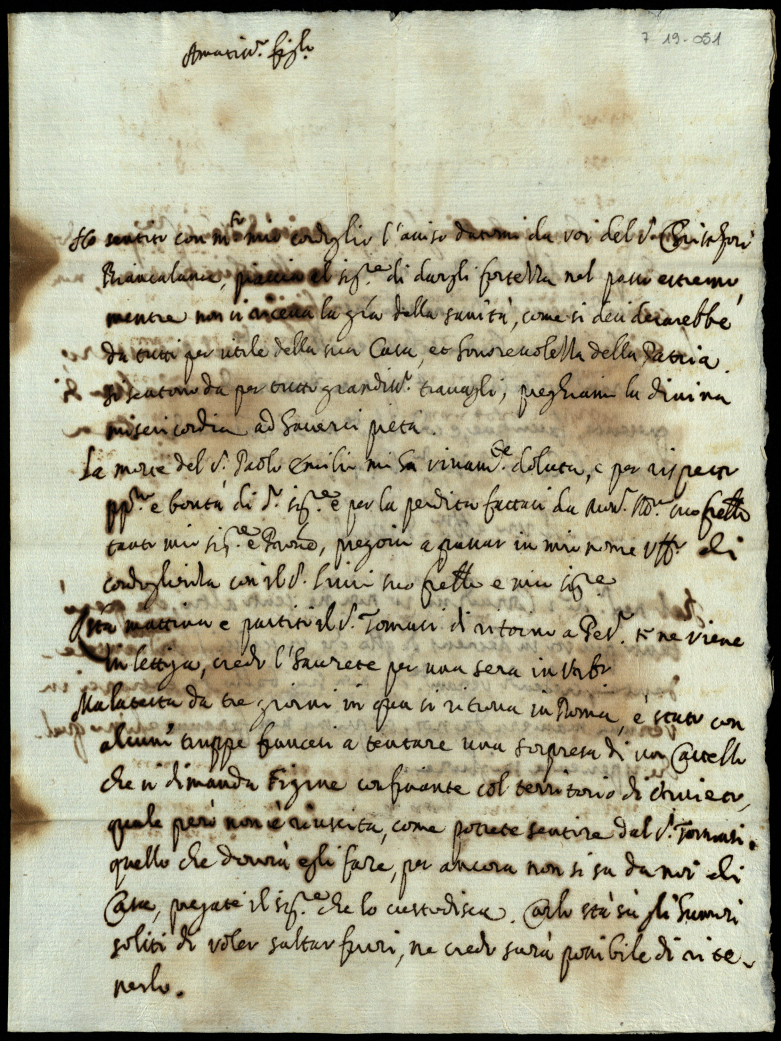 7 19-051
Amatis.º figl.º
Ho sentito con m.to mio cordoglio l'aviso datomi da voi del S.r
Biancalana, piaccia al sig.re di dargli fortezza nel passo estremo,
mentre non si riceva la gr̃a della sanità, come si desiderarebbe
da tutti per utile della sua Casa, et honorevolezza della Patria.
si sentono da per tutto grandis.i travagli, preghiamo la divina
misericordia ad haverci pietà.
La morte del S.r Paolo Emilio mi ha vivam.te doluta, e per rispetto
e bontà di d.o sig.re e per la perdita fattasi da fr̃ello
tanto mio sig.re e Prõne, pregovi a passar in mio nome uff.o di
cordoglienza con il S.r suo fr̃ello e mio sig.re
Q̃sta mattina è partito il S.r Tomasi di ritorno a Pes.o se ne viene
in lettiga, credo l'haverete per una sera in Urb.o
Malatesta da tre giorni in qua si ritrova in Roma, è stato con
alcuni truppe francesi a tentare una sorpresa di un Castello
che si dimanda Figine confinante col territorio di Orvieto,
quale però non è riuscita, come potrete sentire dal S.r Tomasi.
quello che dovrà egli fare, per ancora non si sa da noi di
Casa, pregate il sig.re che lo custodisca. Carlo stà sù gli humori
soliti di voler saltar fuori, ne credo sarà possibile di rite-
nerlo.